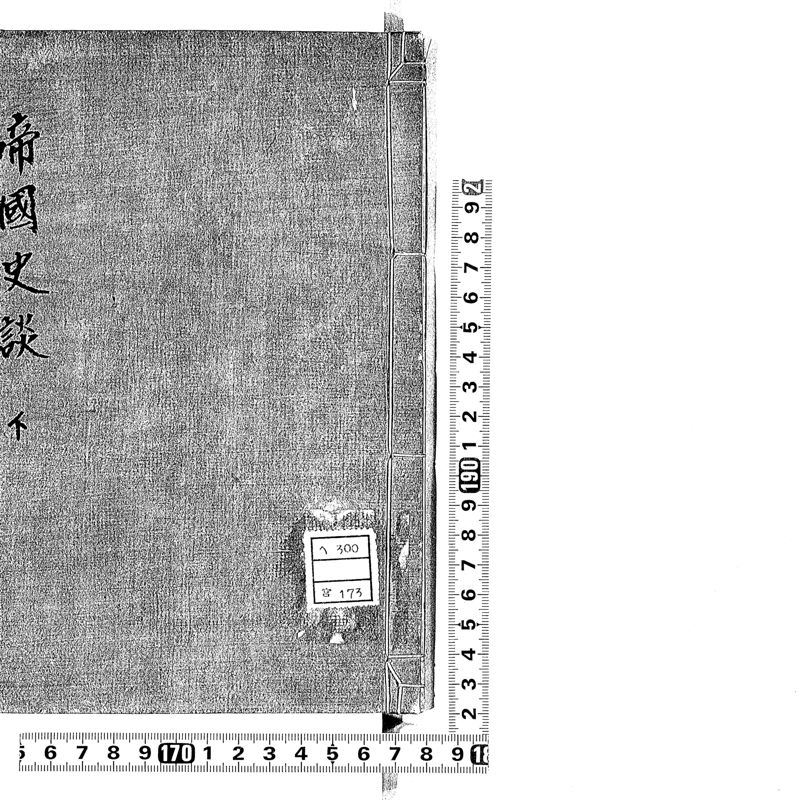 帝國史談 下
ヘ 300
宮 173
2 9 8 7 6 5 4 3 2 1 190 9 8 7 6 5 4 3 2
5 6 7 8 9 170 1 2 3 4 5 6 7 8 9 18